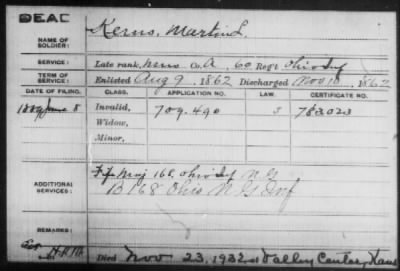 DEAD
NAME OF SOLDIER: Kerns, Martin L.
SERVICE: Late rank, Mus Co. A, 60 Reg't Ohio Inf
TERM OF SERVICE: Enlisted Aug 9, 1862 Discharged Nov 10, 1862
DATE OF FILING. CLASS. APPLICATION NO. LAW. CERTIFICATE NO.
1889 June 8 Invalid, 709.490 3 783023
Widow,
Minor,
ADDITIONAL SERVICES: Fife Maj 168 Ohio Inf N.G
B 168 Ohio N G Inf
REMARKS:
Died Nov 23, 1932 at Valley Center, Kans